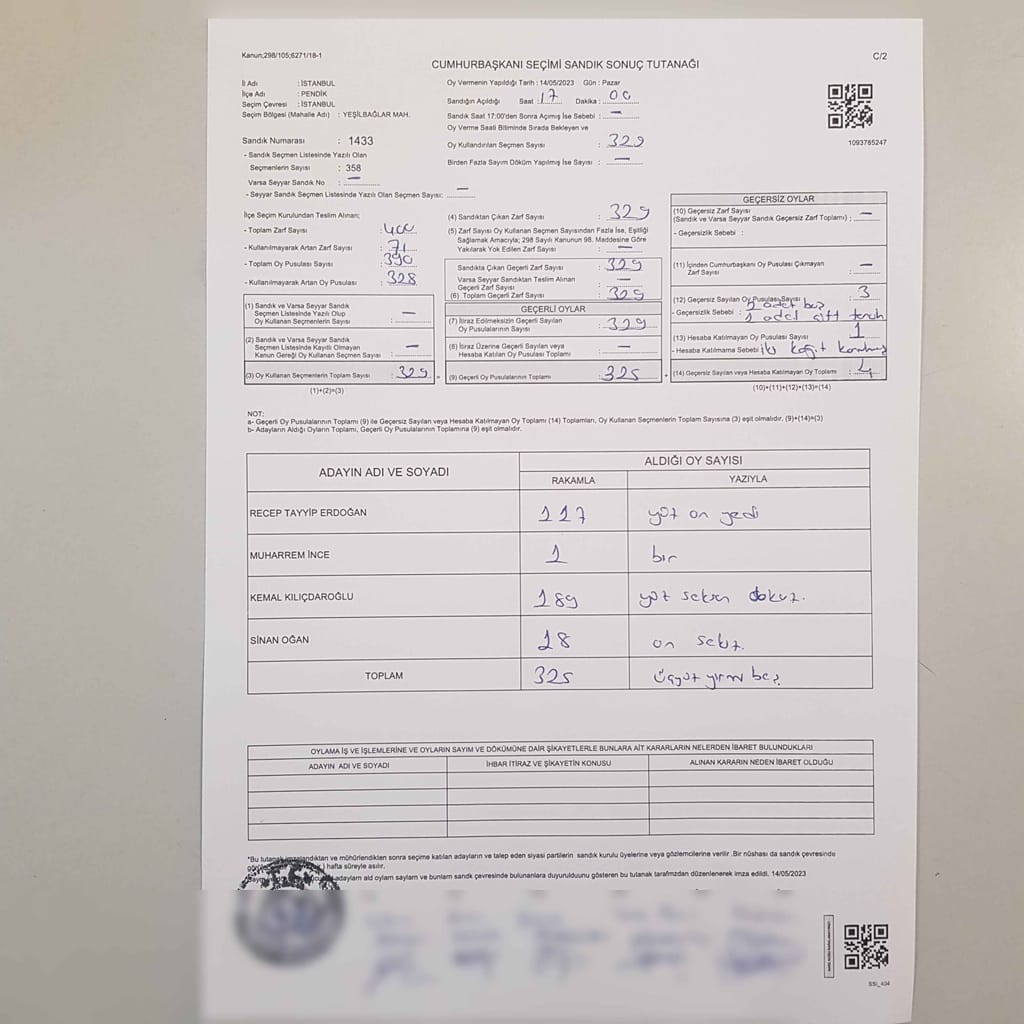 Kanun;298/105;6271/18-1
CUMHURBAŞKANI SEÇİMİ SANDIK SONUÇ TUTANAĞI
C/2
İl Adı : İSTANBUL
İlçe Adı : PENDİK
Seçim Çevresi : İSTANBUL
Seçim Bölgesi (Mahalle Adı) : YEŞİLBAĞLAR MAH.
Sandık Numarası : 1433
- Sandık Seçmen Listesinde Yazılı Olan
Seçmenlerin Sayısı : 358
Varsa Seyyar Sandık No : —
- Seyyar Sandık Seçmen Listesinde Yazılı Olan Seçmen Sayısı: —
Oy Vermenin Yapıldığı Tarih : 14/05/2023 Gün : Pazar
Sandığın Açıldığı Saat : 17 Dakika : 00
Sandık Saat 17:00'den Sonra Açımış İse Sebebi : —
Oy Verme Saati Bitiminde Sırada Bekleyen ve
Oy Kullandırılan Seçmen Sayısı : 329
Birden Fazla Sayım Döküm Yapılmış İse Sayısı : —
1093785247
İlçe Seçim Kurulundan Teslim Alınan;
- Toplam Zarf Sayısı : 400
- Kullanılmayarak Artan Zarf Sayısı : 71
- Toplam Oy Pusulası Sayısı : 390
- Kullanılmayarak Artan Oy Pusulası : 328
(1) Sandık ve Varsa Seyyar Sandık
Seçmen Listesinde Yazılı Olup
Oy Kullanan Seçmenlerin Sayısı : —
(2) Sandık ve Varsa Seyyar Sandık
Seçmen Listesinde Kayıtlı Olmayan
Kanun Gereği Oy Kullanan Seçmen Sayısı : —
(3) Oy Kullanan Seçmenlerin Toplam Sayısı : 329
(1)+(2)=(3)
(4) Sandıktan Çıkan Zarf Sayısı : 329
(5) Zarf Sayısı Oy Kullanan Seçmen Sayısından Fazla İse, Eşitliği
Sağlamak Amacıyla; 298 Sayılı Kanunun 98. Maddesine Göre
Yakılarak Yok Edilen Zarf Sayısı : —
Sandıkta Çıkan Geçerli Zarf Sayısı : 329
Varsa Seyyar Sandıktan Teslim Alınan
Geçerli Zarf Sayısı : —
(6) Toplam Geçerli Zarf Sayısı : 329
GEÇERLİ OYLAR
(7) İtiraz Edilmeksizin Geçerli Sayılan
Oy Pusulalarının Sayısı : 329
(8) İtiraz Üzerine Geçerli Sayılan veya
Hesaba Katılan Oy Pusulası Toplamı : —
(9) Geçerli Oy Pusulalarının Toplamı : 325
GEÇERSİZ OYLAR
(10) Geçersiz Zarf Sayısı
(Sandık ve Varsa Seyyar Sandık Geçersiz Zarf Toplamı) : —
- Geçersizlik Sebebi :
(11) İçinden Cumhurbaşkanı Oy Pusulası Çıkmayan
Zarf Sayısı : —
(12) Geçersiz Sayılan Oy Pusulası Sayısı : 3
- Geçersizlik Sebebi : 2 adet boş
1 adet çift tercih
(13) Hesaba Katılmayan Oy Pusulası Sayısı : 1
- Hesaba Katılmama Sebebi : iki kağıt
(14) Geçersiz Sayılan veya Hesaba Katılmayan Oy Toplamı : 4
(10)+(11)+(12)+(13)=(14)
NOT:
a- Geçerli Oy Pusulalarının Toplamı (9) ile Geçersiz Sayılan veya Hesaba Katılmayan Oy Toplamı (14) Toplamları, Oy Kullanan Seçmenlerin Toplam Sayısına (3) eşit olmalıdır. (9)+(14)=(3)
b- Adayların Aldığı Oyların Toplamı, Geçerli Oy Pusulalarının Toplamına (9) eşit olmalıdır.
ADAYIN ADI VE SOYADI ALDIĞI OY SAYISI
RAKAMLA YAZIYLA
RECEP TAYYİP ERDOĞAN 117 yüz on yedi
MUHARREM İNCE 1 bir
KEMAL KILIÇDAROĞLU 189 yüz seksen dokuz.
SİNAN OĞAN 18 on sekiz.
TOPLAM 325 üçyüz yirmi beş
OYLAMA İŞ VE İŞLEMLERİNE VE OYLARIN SAYIM VE DÖKÜMÜNE DAİR ŞİKAYETLERLE BUNLARA AİT KARARLARIN NELERDEN İBARET BULUNDUKLARI
ADAYIN ADI VE SOYADI İHBAR İTİRAZ VE ŞİKAYETİN KONUSU ALINAN KARARIN NEDEN İBARET OLDUĞU
*Bu tutanak imzalandıktan ve mühürlendikten sonra seçime katılan adayların ve talep eden siyasi partilerin sandık kurulu üyelerine veya gözlemcilerine verilir .Bir nüshası da sandık çevresinde
) hafta süreyle asılır.
adaylarn ald oylarn saylarn ve bunlarn sandk çevresinde bulunanlara duyurulduunu gösteren bu tutanak tarafmzdan düzenlenerek imza edildi. 14/05/2023
SSL_404